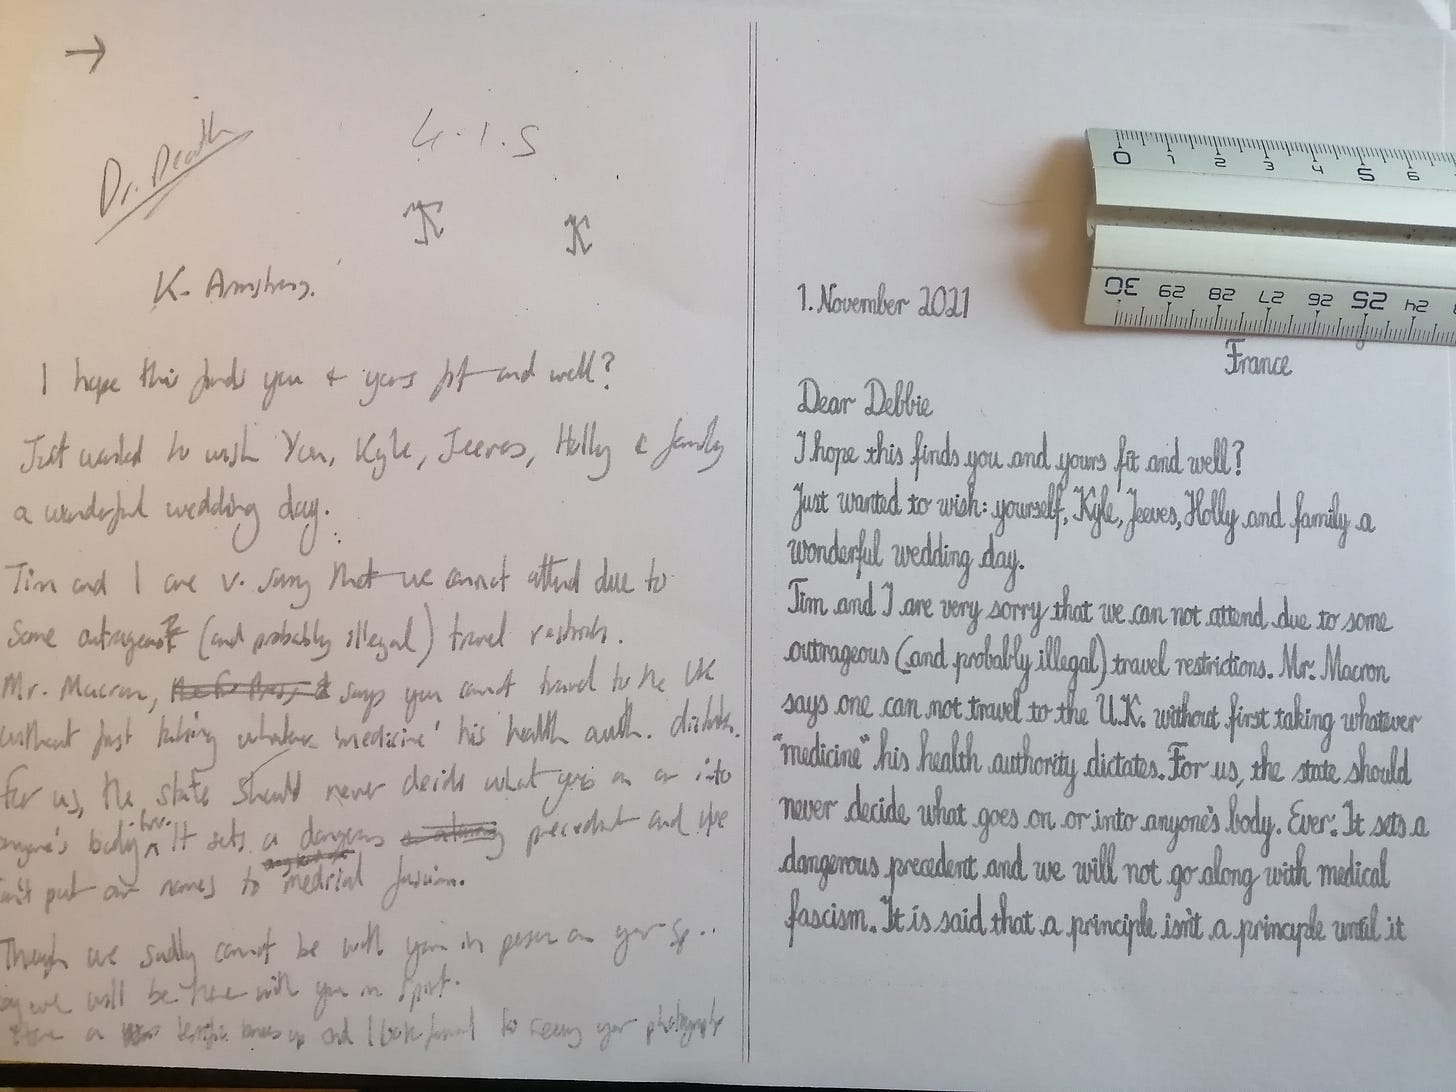 →
Dr. Death
4.1.S
K K
K. Armstrong.
I hope this finds you & yours fit and well?
Just wanted to wish You, Kyle, Jeeves, Holly & family
a wonderful wedding day.
Tim and I are v. sorry that we cannot attend due to
some outrageous (and probably illegal) travel restrictions.
Mr. Macron, says you cannot travel to the UK
without first taking whatever 'medicine' his health auth. dictates.
For us, the state should never decide what goes on or into
anyone's body It sets a dangerous precedent and we
put our names to medical fascism.
Though we sadly cannot be with you in person on your
we will be there with you in spirit.
a terrific and I look forward to seeing your photographs
0 1 2 3 4 5 6
30 29 28 27 26 25 24
1. November 2021
France
Dear Debbie
I hope this finds you and yours fit and well?
Just wanted to wish: yourself, Kyle, Jeeves, Holly and family a
wonderful wedding day.
Tim and I are very sorry that we can not attend due to some
outrageous (and probably illegal) travel restrictions. Mr. Macron
says one can not travel to the U.K. without first taking whatever
"medicine" his health authority dictates. For us, the state should
never decide what goes on or into anyone's body. Ever. It sets a
dangerous precedent and we will not go along with medical
fascism. It is said that a principle isn't a principle until it